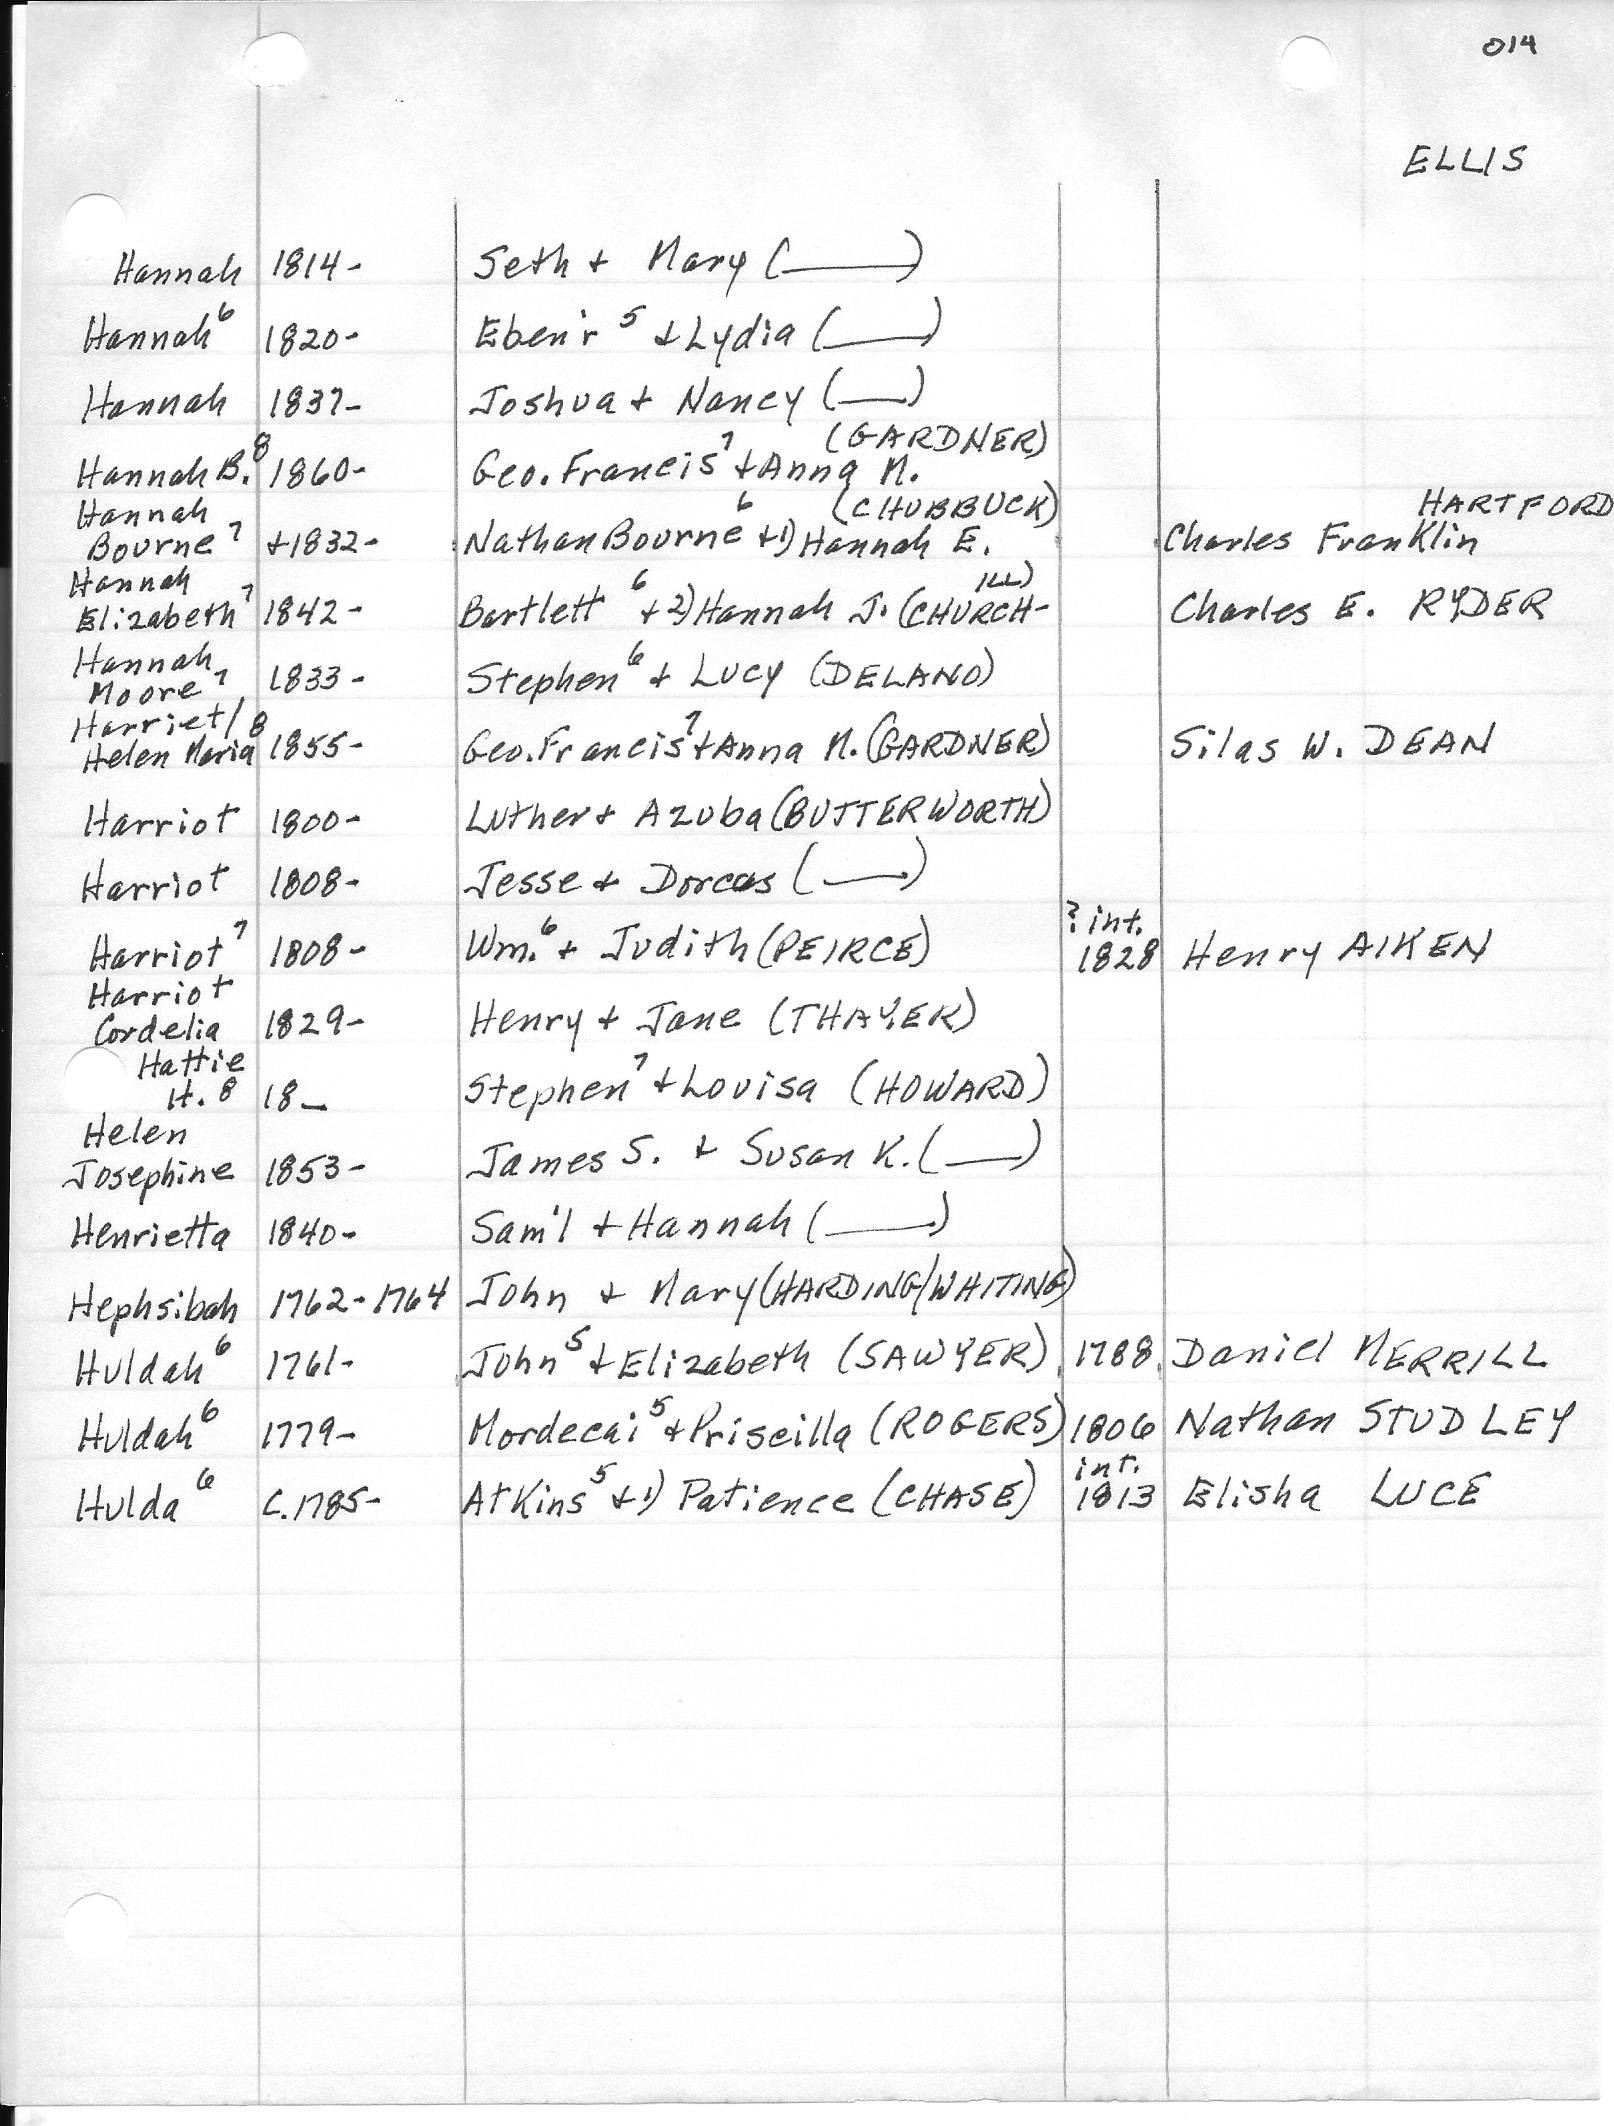 014
ELLIS
Hannah 1814- Seth + Mary (——)
Hannah⁶ 1820- Eben'r⁵ + Lydia (——)
Hannah 1837- Joshua + Nancy (——)
(GARDNER)
Hannah B.⁸ 1860- Geo. Francis⁷ + Anna M.
Hannah (CHUBBUCK) HARTFORD
Bourne⁷ +1832- Nathan Bourne⁶ +1) Hannah E. Charles Franklin
Hannah ILL)
Elizabeth⁷ 1842- Bartlett⁶ + 2) Hannah J. (CHURCH- Charles E. RYDER
Hannah
Moore⁷ 1833- Stephen⁶ + Lucy (DELANO)
Harriet/
Helen Maria⁸ 1855- Geo. Francis⁷ + Anna M. (GARDNER) Silas W. DEAN
Harriot 1800- Luther + Azuba (BUTTERWORTH)
Harriot 1808- Jesse + Dorcas (——)
? int.
Harriot⁷ 1808- Wm.⁶ + Judith (PEIRCE) 1828 Henry AIKEN
Harriot
Cordelia 1829- Henry + Jane (THAYER)
Hattie
H.⁸ 18— Stephen⁷ + Louisa (HOWARD)
Helen
Josephine 1853- James S. + Susan K. (——)
Henrietta 1840- Sam'l + Hannah (——)
Hephsibah 1762-1764 John + Mary (HARDING/WHITING)
Huldah⁶ 1761- John⁵ + Elizabeth (SAWYER) 1788 Daniel MERRILL
Huldah⁶ 1779- Mordecai⁵ + Priscilla (ROGERS) 1806 Nathan STUDLEY
int.
Hulda⁶ c.1785- Atkins⁵ +1) Patience (CHASE) 1813 Elisha LUCE